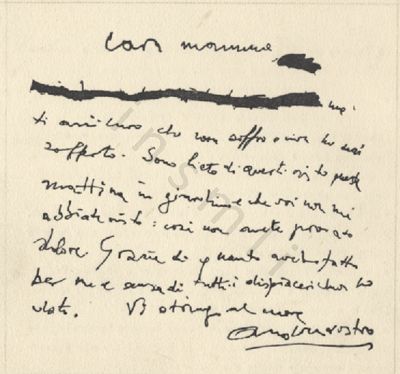 Cara mamma
ti assicuro che non soffro e non ho mai
sofferto. Sono lieto di questa
mattina in giardino che voi non mi
abbiate visto: così non avete provato
dolore. Grazie di quanto avete fatto
per me e scusa di tutti i dispiaceri che ho
dato. Vi stringo al cuore
vostro
insmli